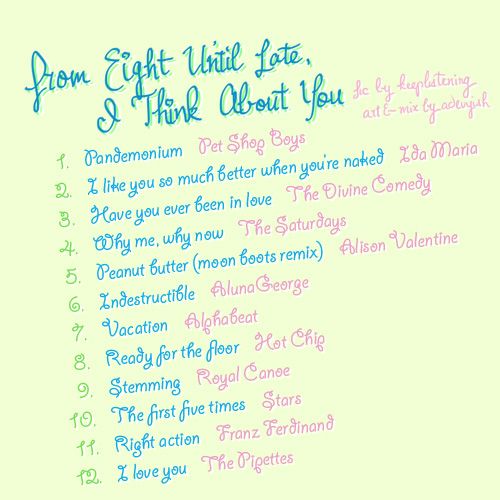 From Eight Until Late,
I Think About You
fic by keeplistening
art & mix by adevyish
1. Pandemonium Pet Shop Boys
2. I like you so much better when you're naked Ida Maria
3. Have you ever been in love The Divine Comedy
4. Why me, why now The Saturdays
5. Peanut butter (moon boots remix) Alison Valentine
6. Indestructible AlunaGeorge
7. Vacation Alphabeat
8. Ready for the floor Hot Chip
9. Stemming Royal Canoe
10. The first five times Stars
11. Right action Franz Ferdinand
12. I love you The Pipettes